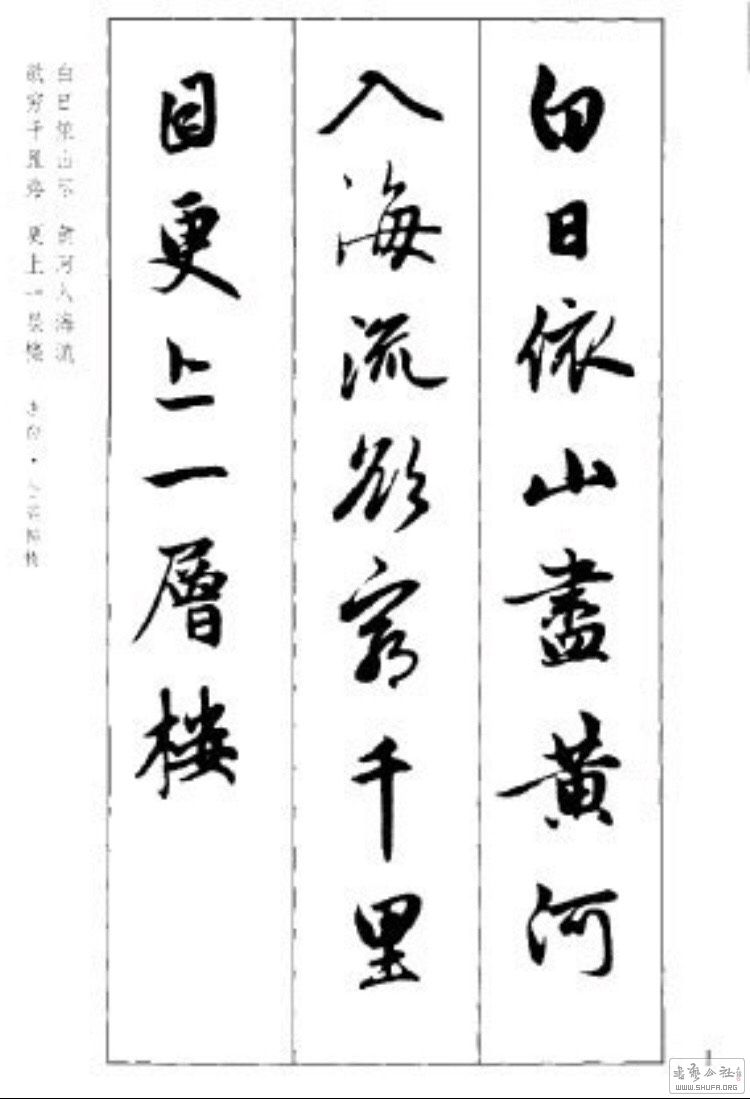 白日依山盡黄河
入海流欲窮千里
目更上一層樓
白日依山尽 黄河入海流
欲穷千里目 更上一层楼
书艺公社
WWW.SHUFA.ORG